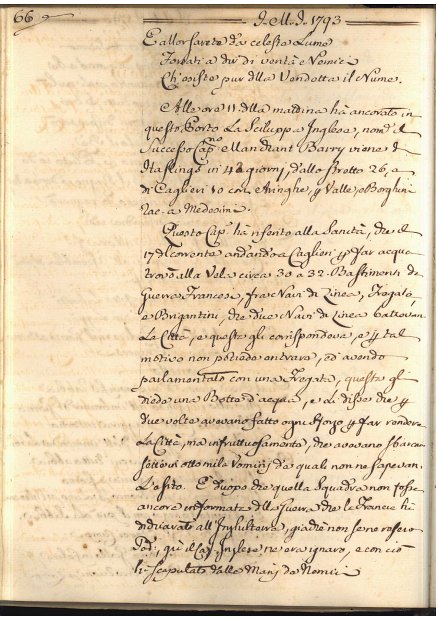 66 J. M. J. 1793
E allor sarete da celeste Lume
Forzati a dir di verità Nemici
Ch'esiste pur della Vendetta il Nume.
Alle ore 11 della mattina hà ancorato in
questo Porto La Sciluppa Inglese, nom.ª il
Successo Cap.no Marchant Barry viene d'
Hastings in 42 giorni, dallo Stretto 26, e
di Caglieri 10 con Aringhe, p Valle, e Borghini
rac. a Medesimi.
Questo Cap.º hà riferito alla Sanità, che il
17 del corrente andando a Caglieri p far acqua
trovò alla Vela circa 30 a 32 Bastimenti da
Guerra Francesi, frà Navi di Linea, Fregate,
e Brigantini, che due Navi di Linea battevan
La Città, e questa gli corrispondeva, e p tal
motivo non potiede entrare, ed avendo
parlamentato con una Fregata, questa gli
diede una Botte d'acqua, e li disse che p
due volte avevano fatto ogni sforzo p far rendere
La Città, ma infruttuosamente, che avevano sbarcati
sette in otto mila Uomini de quali non ne sapevan
L'esito. E d'uopo che quella Squadra non fosse
ancora informata della Guerra che le Francie hà
dichiarato all'Inghilterra, giacchè non se ne
qu il Cap. Inglese ne era ignaro, e con ciò
scapulato dalle Mani de Nemici